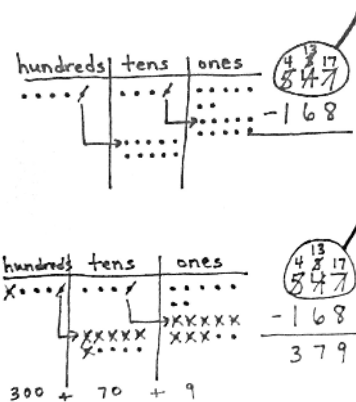 hundreds tens ones
13
4 3 17
547
-168
hundreds tens ones
13
4 3 17
547
-168
379
300 + 70 + 9